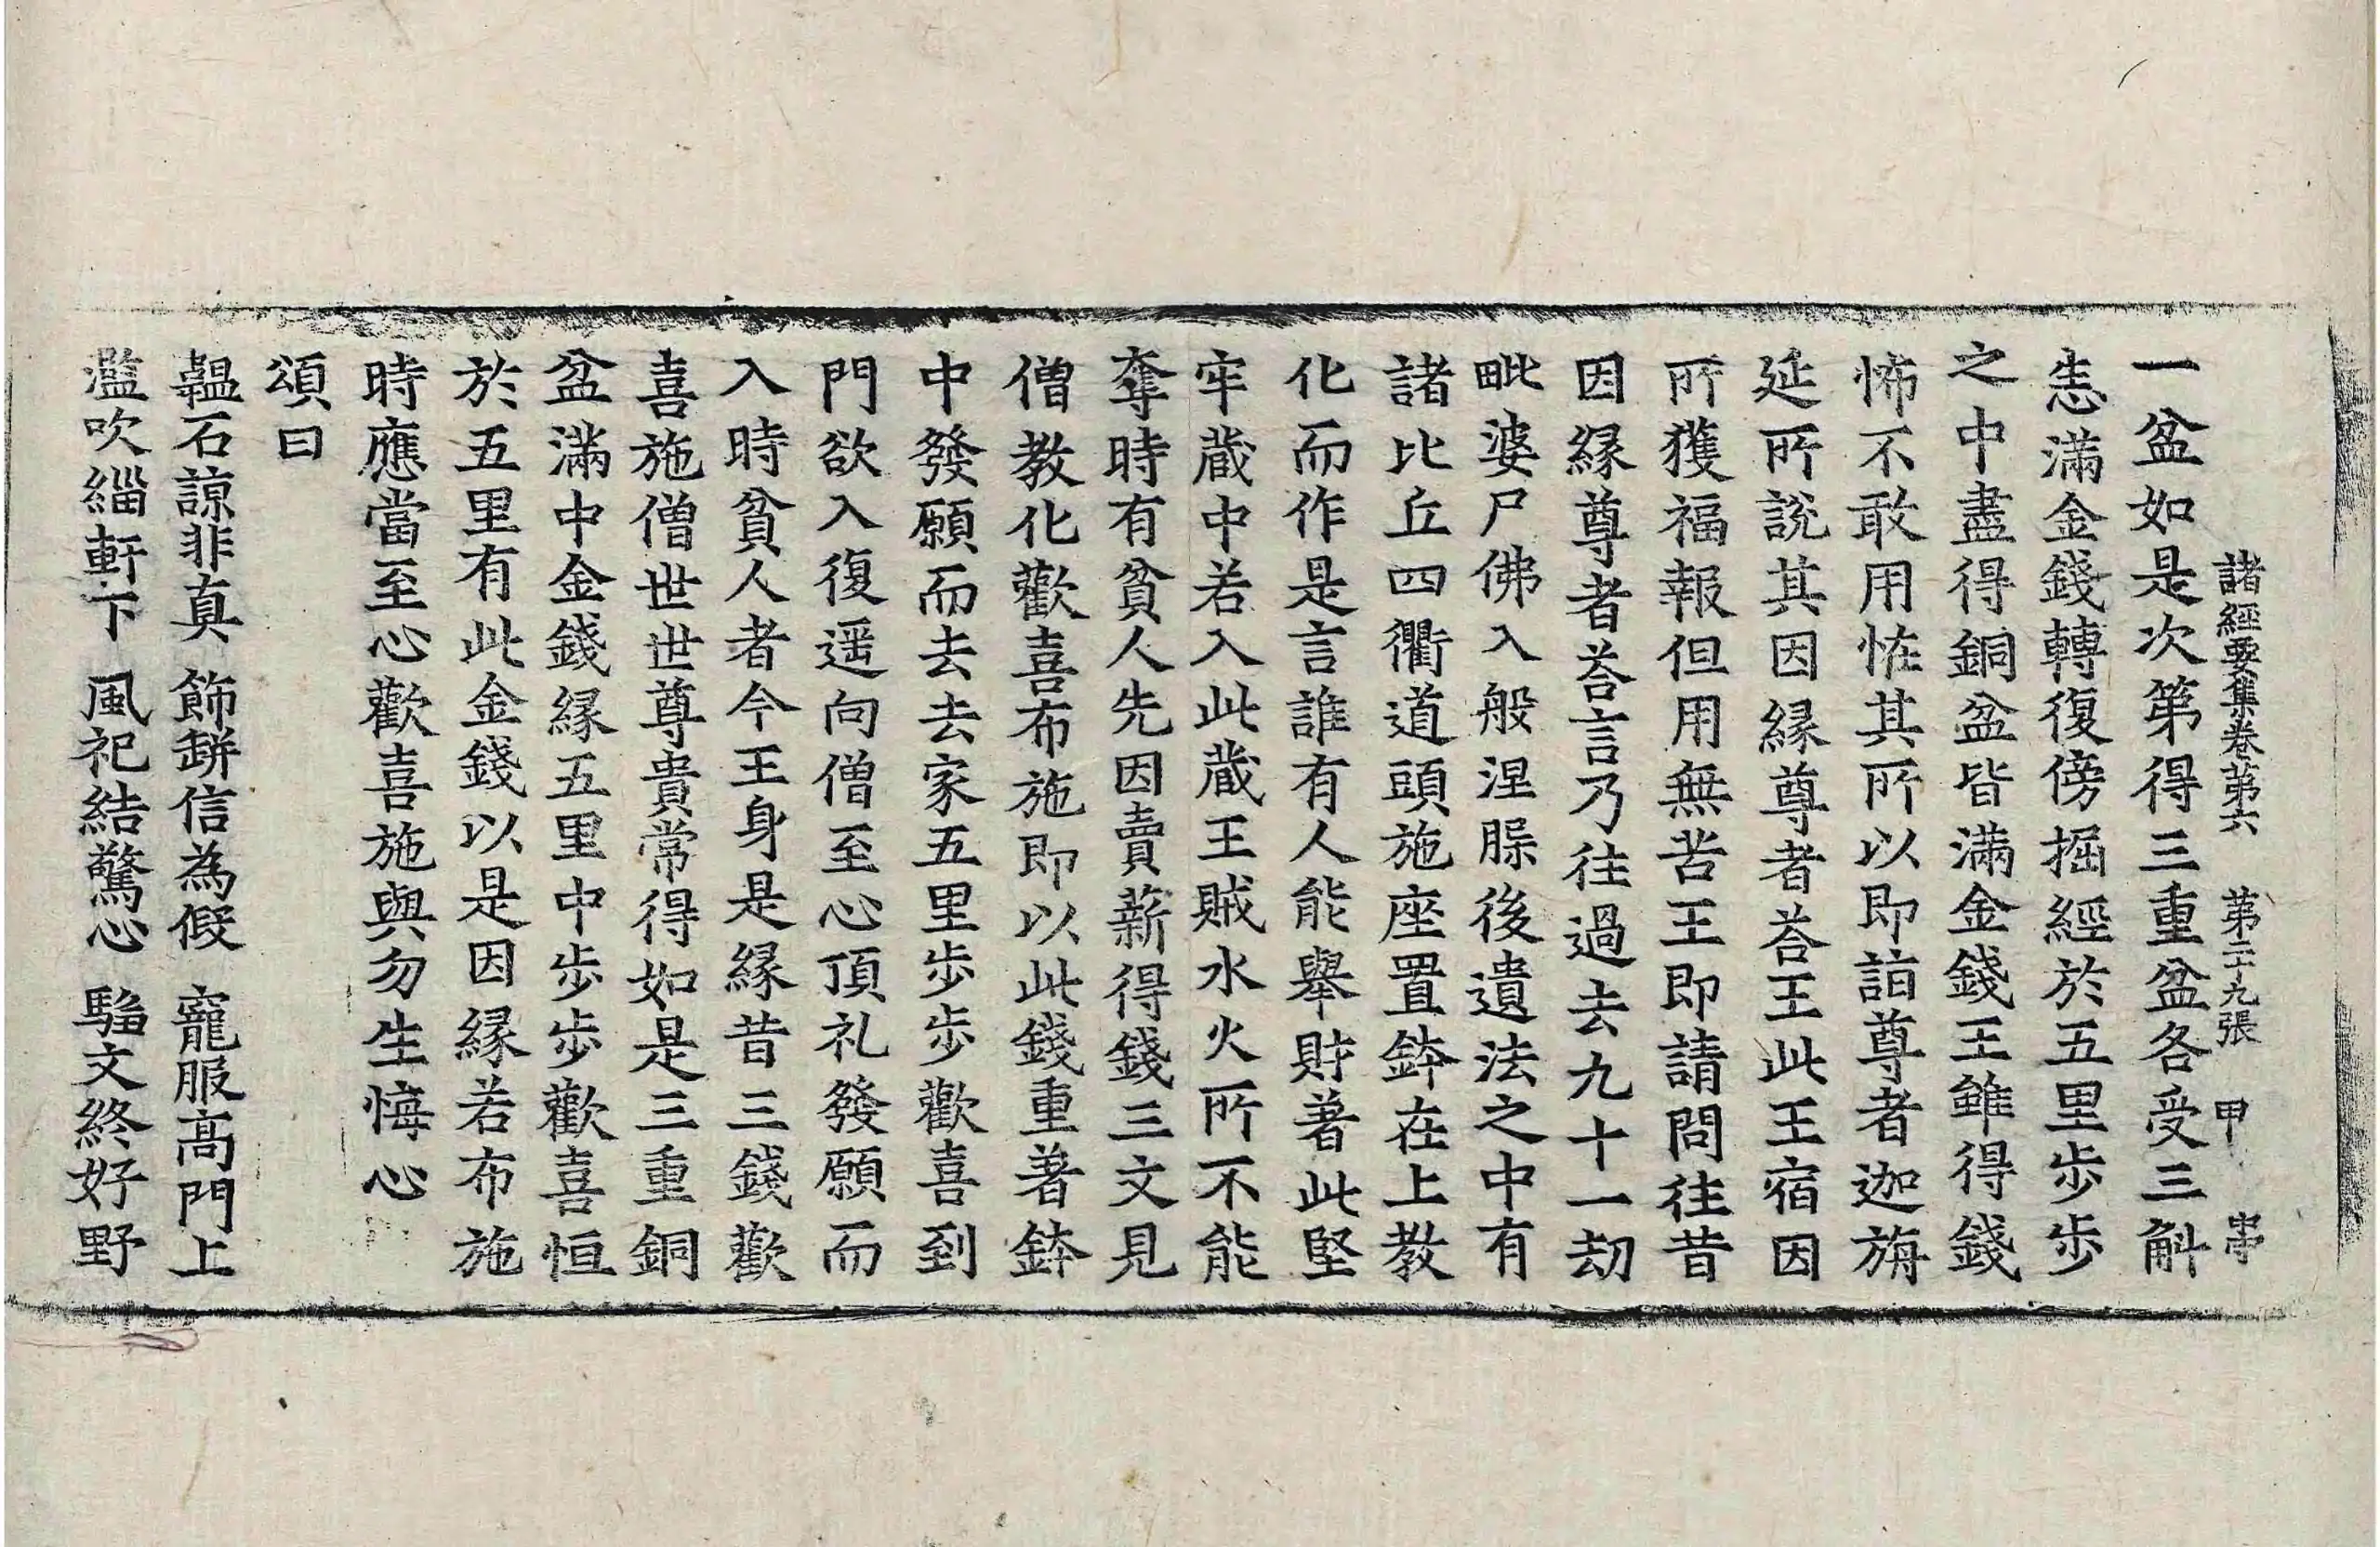 諸經要集卷第六　第二十九張　甲
一盆如是次第得三重盆各受三斛
恚滿金錢轉復傍掘經於五里步步
之中盡得銅盆皆滿金錢王雖得錢
怖不敢用恠其所以即詣尊者迦旃
延所說其因緣尊者荅王此王宿因
所獲福報但用無苦王即請問往昔
因緣尊者荅言乃往過去九十一劫
毗婆尸佛入般涅腺後遺法之中有
諸比丘四衢道頭施座置鉢在上教
化而作是言誰有人能舉財著此堅
牢蔵中若入此蔵王賊水火所不能
奪時有貧人先因賣薪得錢三文見
僧教化歡喜布施即以此錢重著鉢
中發願而去去家五里步步歡喜到
門欲入復遥向僧至心頂礼發願而
入時貧人者今王身是緣昔三錢歡
喜施僧世世尊貴常得如是三重銅
盆滿中金錢緣五里中步步歡喜恒
於五里有此金錢以是因緣若布施
時應當至心歡喜施與勿生悔心
頌曰
韞石諒非真　飾缾信為假　寵服高門上
濫吹緇軒下　風祀結驚心　騶文終好野